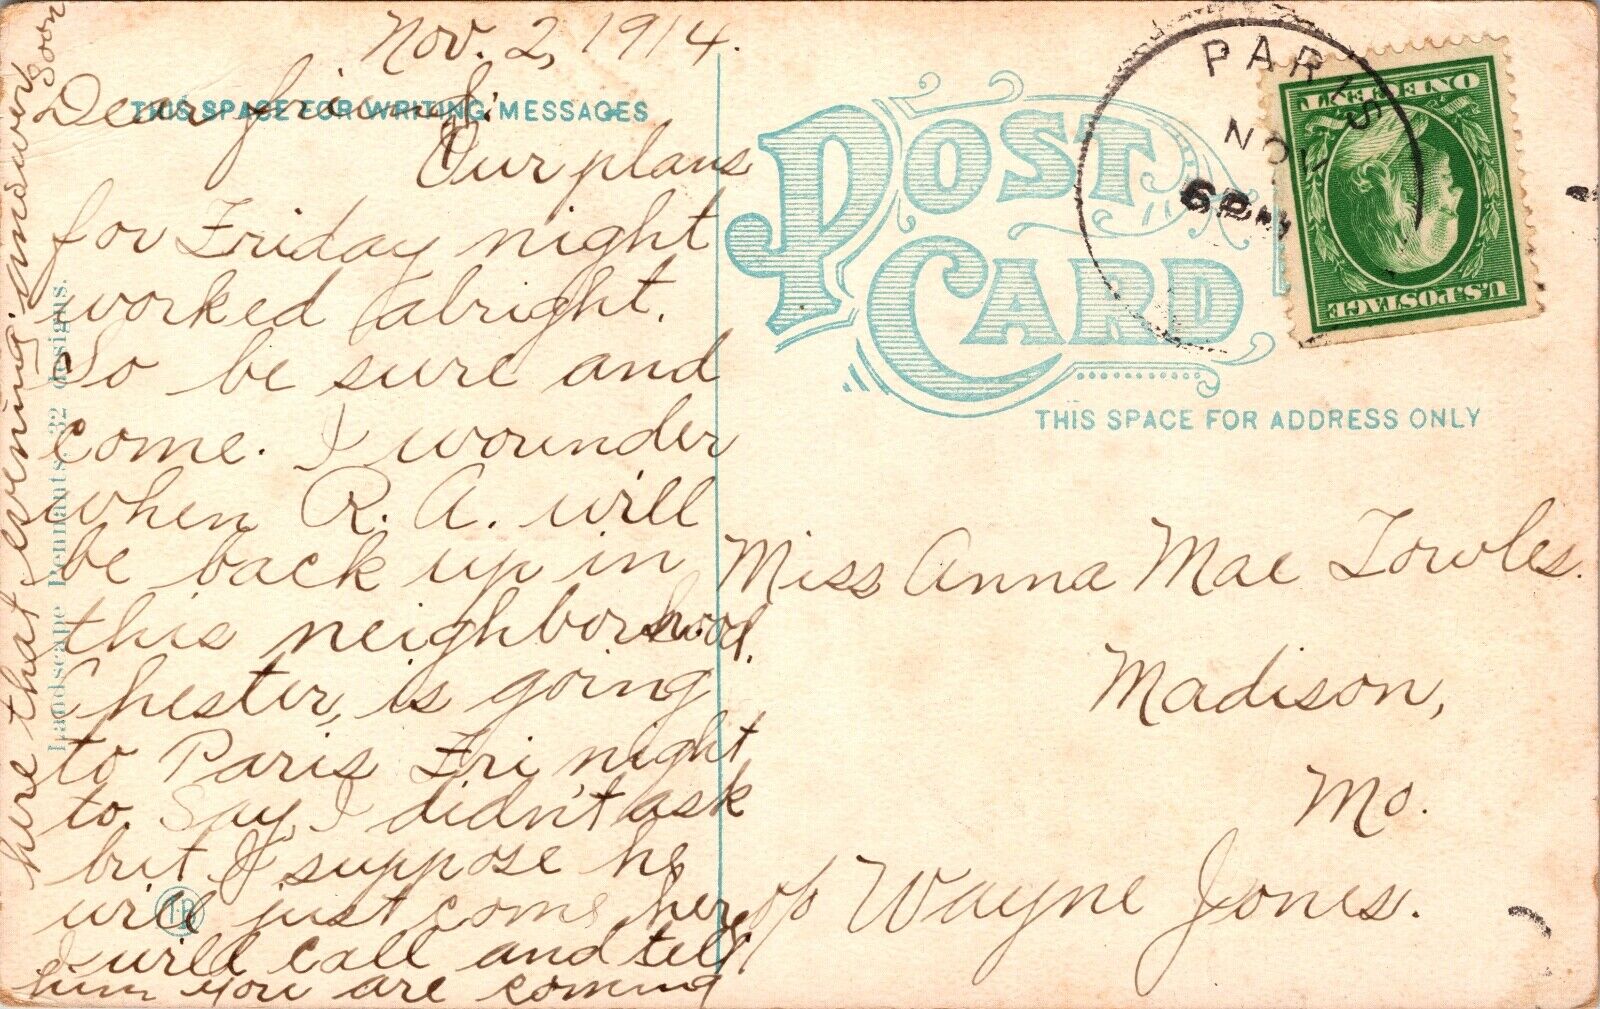 Nov. 2, 1914.
THIS SPACE FOR WRITING MESSAGES
Dear friend:
Our plans
for Friday night
worked alright.
So be sure and
come. I wounder
when R. A. will
be back up in
this neighborhood.
Chester, is going
to Paris Fri night
to. Say, I didn't ask
but I suppose he
will just come here
I will call and tell
him you are coming
here that evening. answer
soon
Landscape Pennants. 32 designs.
TP
POST CARD
THIS SPACE FOR ADDRESS ONLY
PARIS
NOV
6 PM
U.S. POSTAGE
ONE CENT
Miss Anna Mae Towles.
Madison,
Mo.
c/o Wayne Jones.